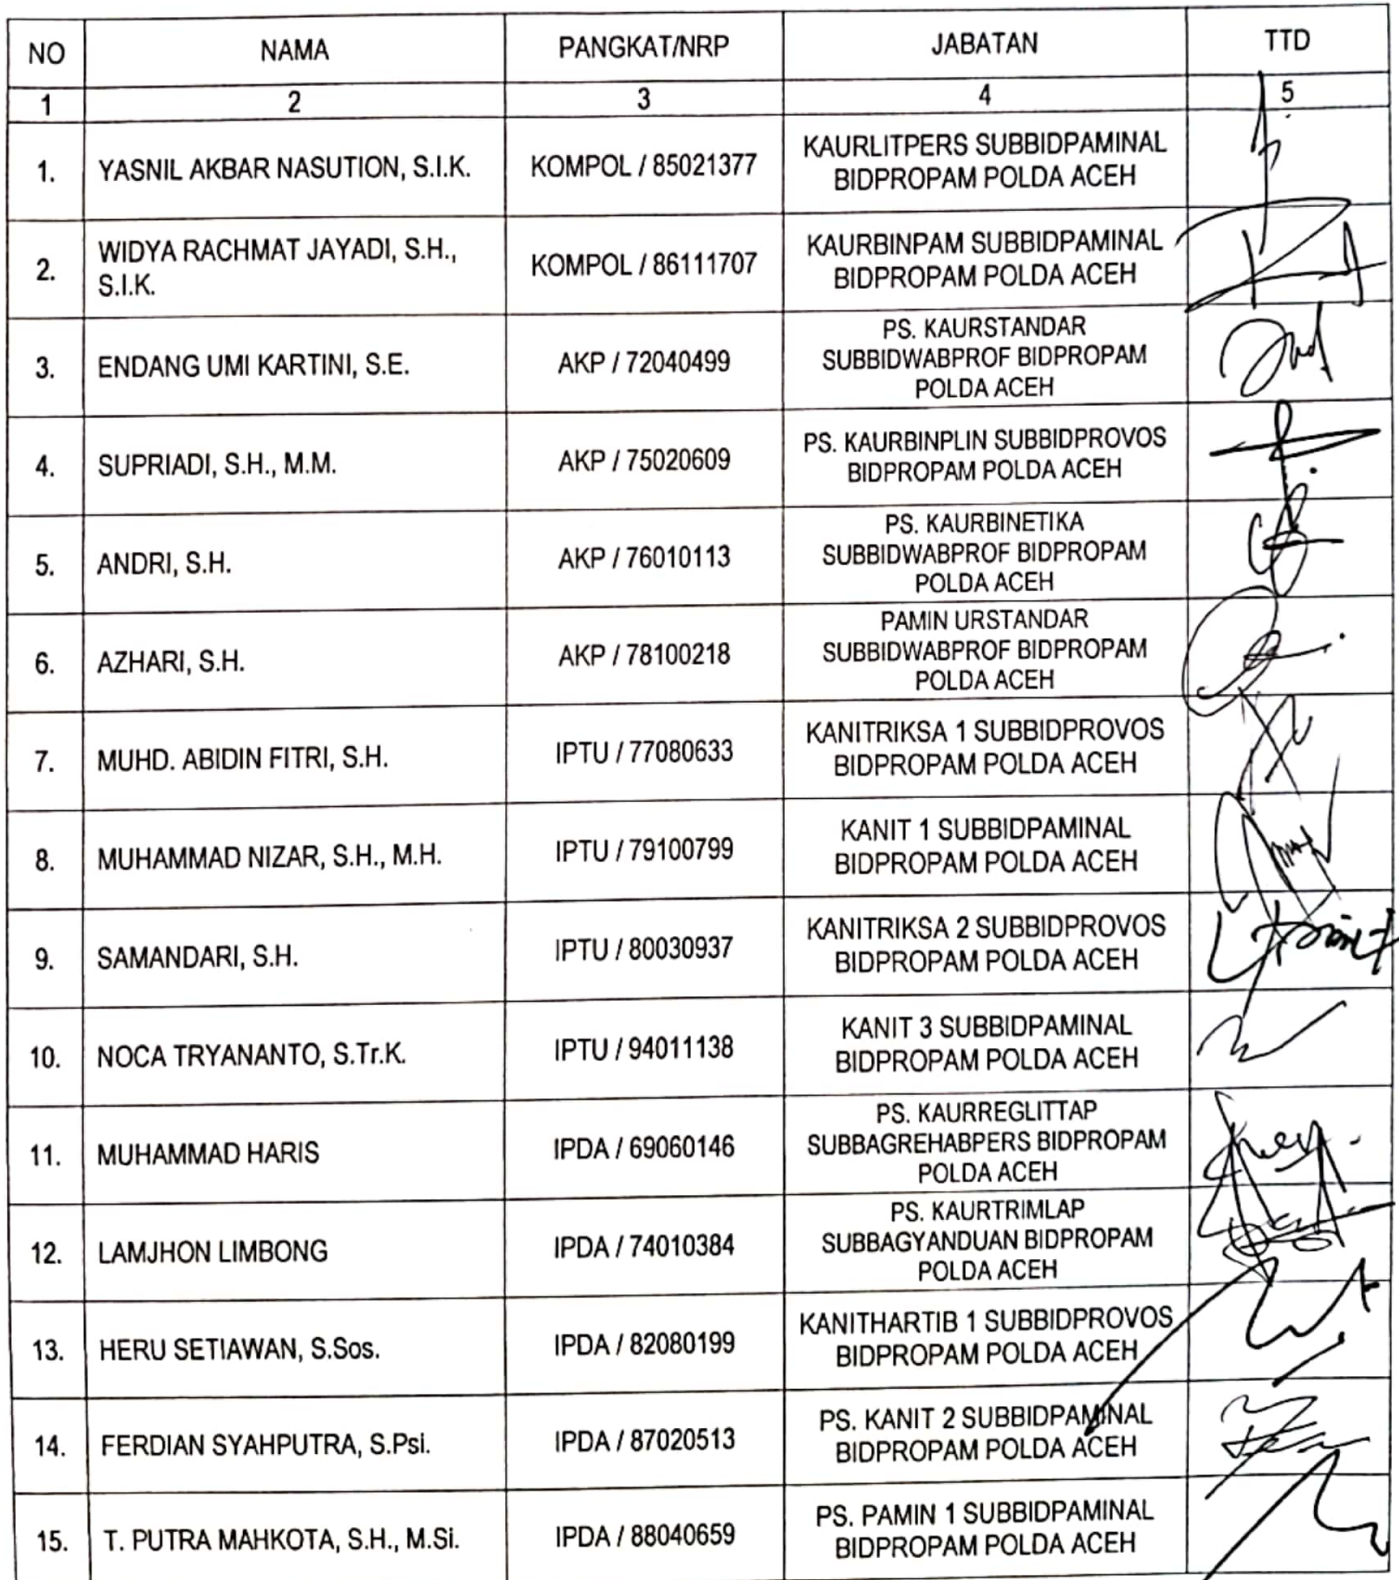 NO NAMA PANGKAT/NRP JABATAN TTD
1 2 3 4 5
1. YASNIL AKBAR NASUTION, S.I.K. KOMPOL / 85021377 KAURLITPERS SUBBIDPAMINAL
BIDPROPAM POLDA ACEH
2. WIDYA RACHMAT JAYADI, S.H.,
S.I.K. KOMPOL / 86111707 KAURBINPAM SUBBIDPAMINAL
BIDPROPAM POLDA ACEH
3. ENDANG UMI KARTINI, S.E. AKP / 72040499 PS. KAURSTANDAR
SUBBIDWABPROF BIDPROPAM
POLDA ACEH
4. SUPRIADI, S.H., M.M. AKP / 75020609 PS. KAURBINPLIN SUBBIDPROVOS
BIDPROPAM POLDA ACEH
5. ANDRI, S.H. AKP / 76010113 PS. KAURBINETIKA
SUBBIDWABPROF BIDPROPAM
POLDA ACEH
6. AZHARI, S.H. AKP / 78100218 PAMIN URSTANDAR
SUBBIDWABPROF BIDPROPAM
POLDA ACEH
7. MUHD. ABIDIN FITRI, S.H. IPTU / 77080633 KANITRIKSA 1 SUBBIDPROVOS
BIDPROPAM POLDA ACEH
8. MUHAMMAD NIZAR, S.H., M.H. IPTU / 79100799 KANIT 1 SUBBIDPAMINAL
BIDPROPAM POLDA ACEH
9. SAMANDARI, S.H. IPTU / 80030937 KANITRIKSA 2 SUBBIDPROVOS
BIDPROPAM POLDA ACEH
10. NOCA TRYANANTO, S.Tr.K. IPTU / 94011138 KANIT 3 SUBBIDPAMINAL
BIDPROPAM POLDA ACEH
11. MUHAMMAD HARIS IPDA / 69060146 PS. KAURREGLITTAP
SUBBAGREHABPERS BIDPROPAM
POLDA ACEH
12. LAMJHON LIMBONG IPDA / 74010384 PS. KAURTRIMLAP
SUBBAGYANDUAN BIDPROPAM
POLDA ACEH
13. HERU SETIAWAN, S.Sos. IPDA / 82080199 KANITHARTIB 1 SUBBIDPROVOS
BIDPROPAM POLDA ACEH
14. FERDIAN SYAHPUTRA, S.Psi. IPDA / 87020513 PS. KANIT 2 SUBBIDPAMINAL
BIDPROPAM POLDA ACEH
15. T. PUTRA MAHKOTA, S.H., M.Si. IPDA / 88040659 PS. PAMIN 1 SUBBIDPAMINAL
BIDPROPAM POLDA ACEH